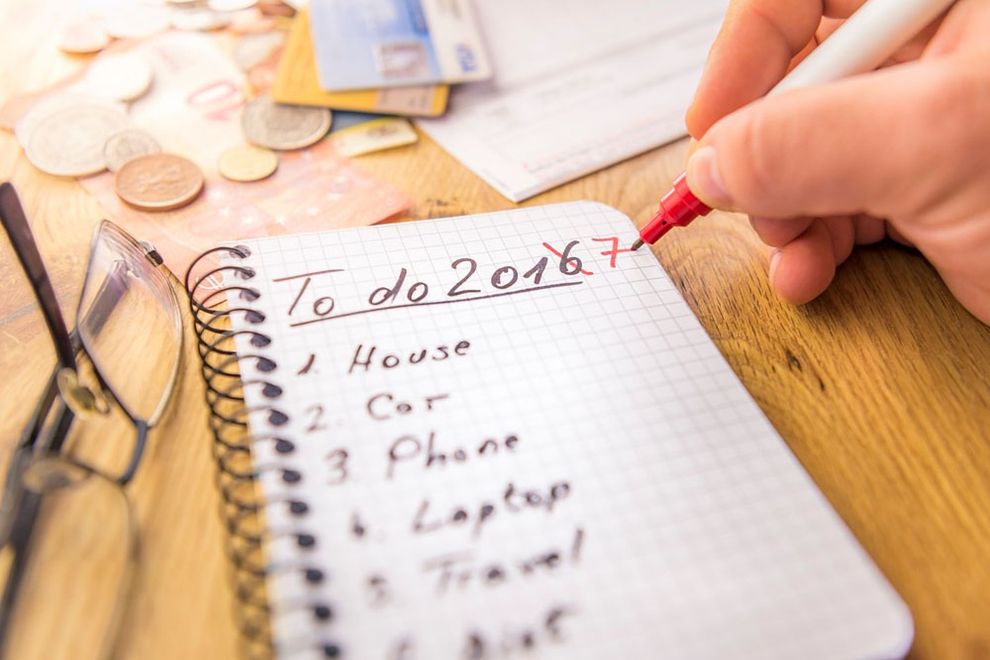 VISA
10
To do 2016 7
1. House
2. Car
3. Phone
4. Laptop
5. Travel
6. Diet